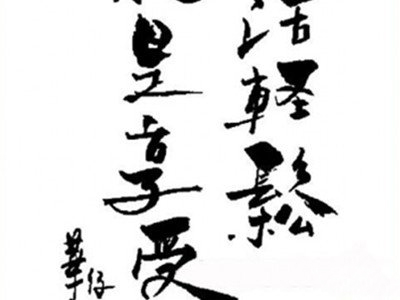 活輕鬆
是享受
華仔